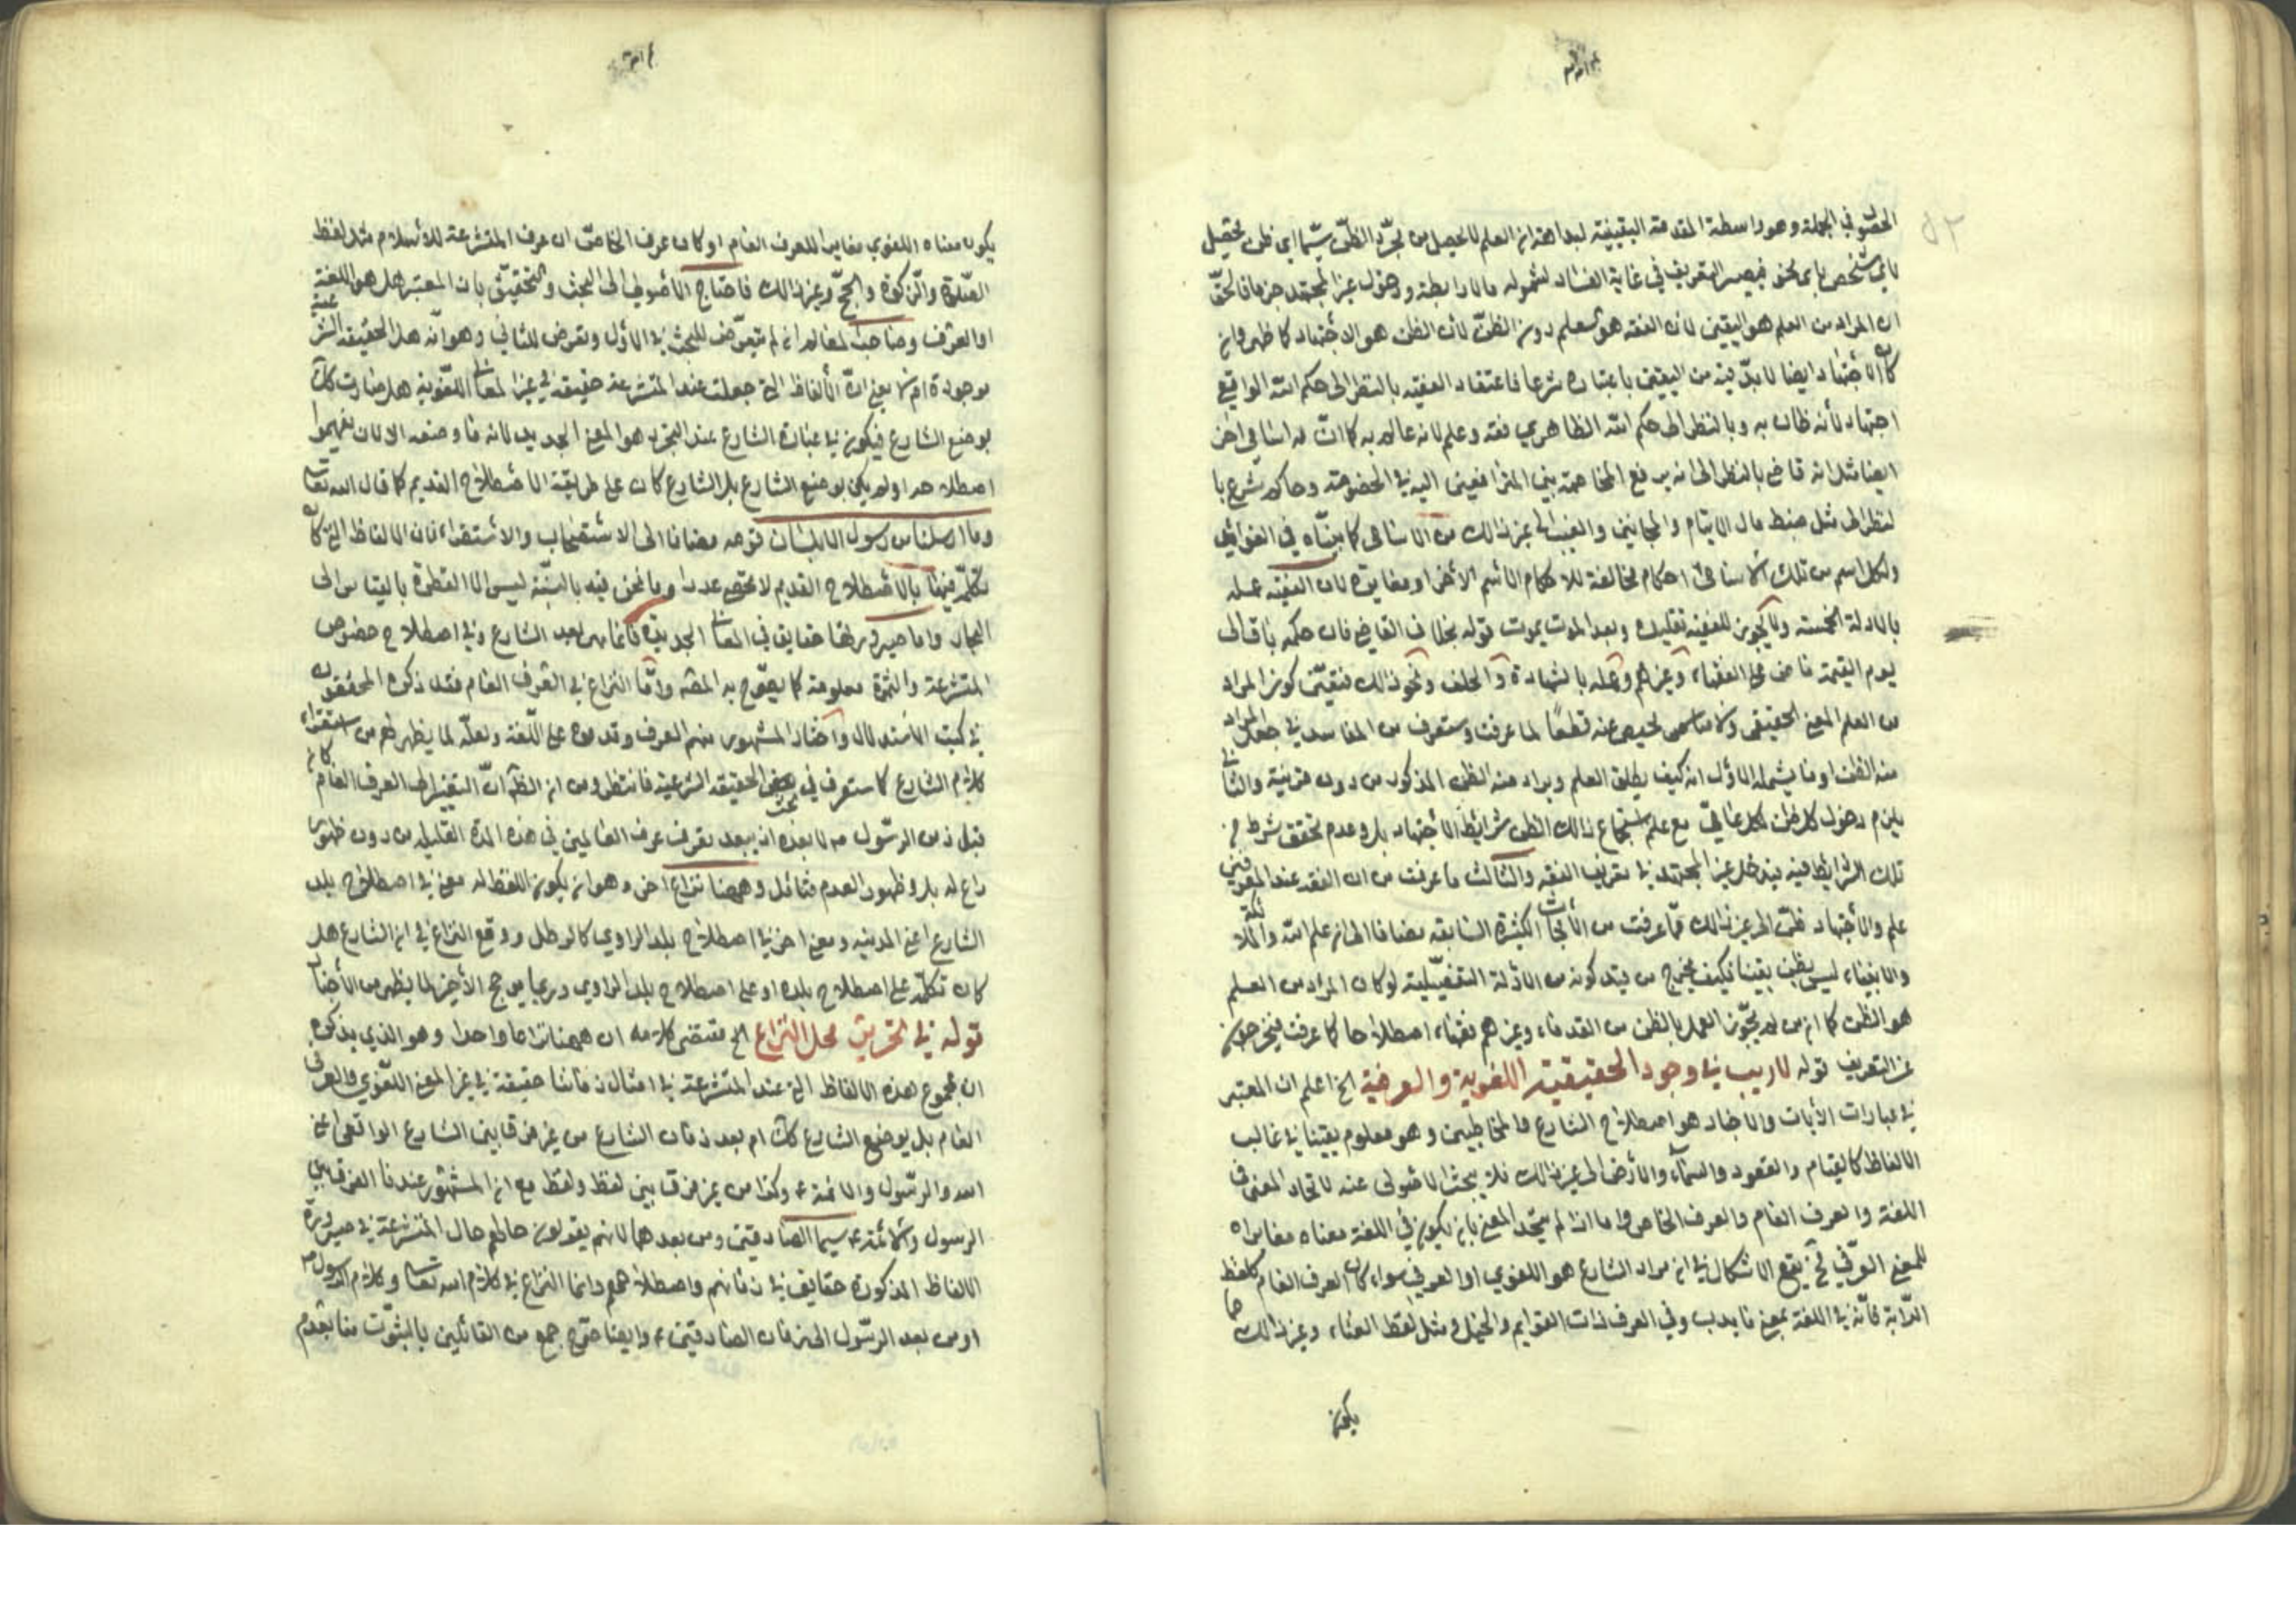 الحصول في الجملة وهو واسطة المقدمة اليقينية لبداهة ان العلم لا يحصل من مجرد الظن سيما اي ظن يحصل
لاي شخص باي نحو فيصير التعريف في غاية الفساد لشموله ودخول غير المجتهد جزما فالحق
ان المراد من العلم هو اليقين لان الفقه هو العلم دون الظن لان الظن هو الاجتهاد كما ظهر وان
كان الاجتهاد ايضا لا بد فيه من اليقين باعتباره شرعا فاعتقاد الفقيه بالنظر الى حكم الله الواقعي
اجتهاد لانه ظان به وبالنظر الى حكم الله الظاهري فقه وعلم لانه عالم به كما ان له اسامي اخر
ايضا مثل انه قاض بالنظر الى انه يرفع المخاصمة بين المترافعين اليه في الخصومة وحاكم شرع با
لنظر الى مثل ضبط مال الايتام والمجانين والغيب الى غير ذلك من الاسامي كما بيناه في الفوائد
ولكل اسم من تلك الاسامي احكام مخالفة للاحكام الاسم الاخر او مغايرة لان الفقيه عمله
بالادلة الخمسة ولا يجوز للفقيه تقليده وبعد الموت يموت قوله بخلاف القاضي فان حكمه باق الى
يوم القيمة ماض على الفقهاء وغيرهم وعمله بالشهادة والحلف ونحو ذلك فتعين كون المراد
من العلم المعنى الحقيقي ولا مناص ولا محيص عنه قطعا لما عرفت وستعرف من المفاسد في جعل المراد
منه الظن او ما يشمله الاول انه كيف يطلق العلم ويراد منه الظن المذكور من دون قرينة والثاني
يلزم دخول كل ظن لكل عامي مع عدم استجماع ذلك الظن شرايط الاجتهاد بل وعدم تحقق شرط من
تلك الشرايط فيه فيدخل غير المجتهد في تعريف الفقه والثالث ما عرفت من ان الفقه عندالمعرفين
علم والاجتهاد ظن الى غير ذلك مما عرفت من الابحاث الكثيرة السابقه مضافا الى ان علم الله والملائكة
والانبياء ليس بظن يقينا فكيف يخرج من قيد كونه من الادلة التفصيلية لو كان المراد من العلم
هو الظن كما ان من لم يجوز العمل بالظن من القدماء وغيرهم فقهاء اصطلاحا كما عرفت فيخرجون
عن التعريف قوله لا ريب في وجود الحقيقة اللغوية والعرفية الخ اعلم ان المعتبر
في عبارات الايات والاخبار هو اصطلاح الشارع والمخاطبين وهو معلوم يقينا في غالب
الالفاظ كالقيام والقعود والسماء والارض الى غير ذلك فلا يبحث الاصولي عنه لاتحاد المعنى في
اللغة والعرف العام والعرف الخاص واما اذا لم يتحد المعنى بان يكون في اللغة معناه مغايرا
للمعنى العرفي فح يقع الاشكال في ان مراد الشارع هو اللغوي او العرفي سواء كان العرف العام كلفظ
الدابة فانه في اللغة بمعنى ما يدب وفي العرف لذات القوايم والخيل ومثل لفظ الغناء وغير ذلك مما
يكون
يكون معناه اللغوي مغايرا للعرف العام او كان عرف الخاص اي عرف المتشرعة للاسلام مثل لفظ
الصلوة والزكوة والحج وغير ذلك فاحتاج الاصولي الى البحث والتحقيق بان المعتبر هل هو اللغة
او العرف وصاحب المعالم انه لم يتعرض للبحث في الاول وتعرض للثاني وهو انه هل الحقيقة الشرعية
موجودة ام لا يعني ان الالفاظ التي جعلت عند المتشرعة حقيقة في غير المعاني اللغوية هل صارت كك
بوضع الشارع فيكون في عبارة الشارع عند التجرد هو المعنى الجديد لانه ما وضعه الا لان يفهموا
اصطلاحه او لم يكن بوضع الشارع بل الشارع كان على طريقة الاصطلاح القديم كما قال الله تعالى
وما ارسلنا من رسول الا بلسان قومه مضافا الى الاستصحاب والاستقراء فان الالفاظ التي كان
تكلم فيها بالاصطلاح القديم لا تحصى عددا وما نحن فيه بالنسبة ليس الا القطرة بالقياس الى
البحار واما صيرورتها حقايق في المعاني الجديدة فانما هي بعد الشارع وفي اصطلاح خصوص
المتشرعة والثمرة معلومة كما يصرح به المص واما النزاع في العرف العام فقد ذكره المحققون
في كتب الاستدلال واختار المشهور منهم العرف وقدموه على اللغة ولعله لما يظهر لهم من استقراء
كلام الشارع كما ستعرف في بحث الحقيقة الشرعية فانتظر ومن ان الظاهر ان التغير الى العرف العام كانه
قبل زمن الرسول ص لا بعده اذ يبعد تعرف عرف العالمين في هذه المدة القليلة من دون ظهور
داع له بل وظهور العدم فتامل وههنا نزاع اخر وهو ان يكون اللفظ له معنى في اصطلاح بلد
الشارع اعني المدينة ومعنى اخر في اصطلاح بلد الراوي كالرطل ووقع النزاع في ان الشارع هل
كان تكلم على اصطلاح بلده او على اصطلاح بلد الراوي وربما يرجح الاخير لما يظهر من الاخبار
قوله في تحرير محل النزاع الخ مقتضى كلامه ان ههنا نزاعا واحدا وهو الذي يذكره
ان مجموع هذه الالفاظ التي عند المتشرعة في امثال زماننا حقيقة في غير المعنى اللغوي والعرفي
العام بل بوضع الشارع كك ام بعد زمان الشارع من غير فرق بين الشارع الواقعي اعني
الله والرسول والائمة ع وكذا من غير فرق بين لفظ ولفظ مع ان المشهور عندنا الفرق بين
الرسول والائمة ع سيما الصادقين ومن بعدهما لانهم يقولون حالهم حال المتشرعة في صيرورة
الالفاظ المذكورة حقايق في زمانهم واصطلاحهم وانما النزاع في كلام الله تعالى وكلام الرسول ص
او من بعد الرسول الى زمان الصادقين ع وايضا صرح جمع من القائلين بالثبوت